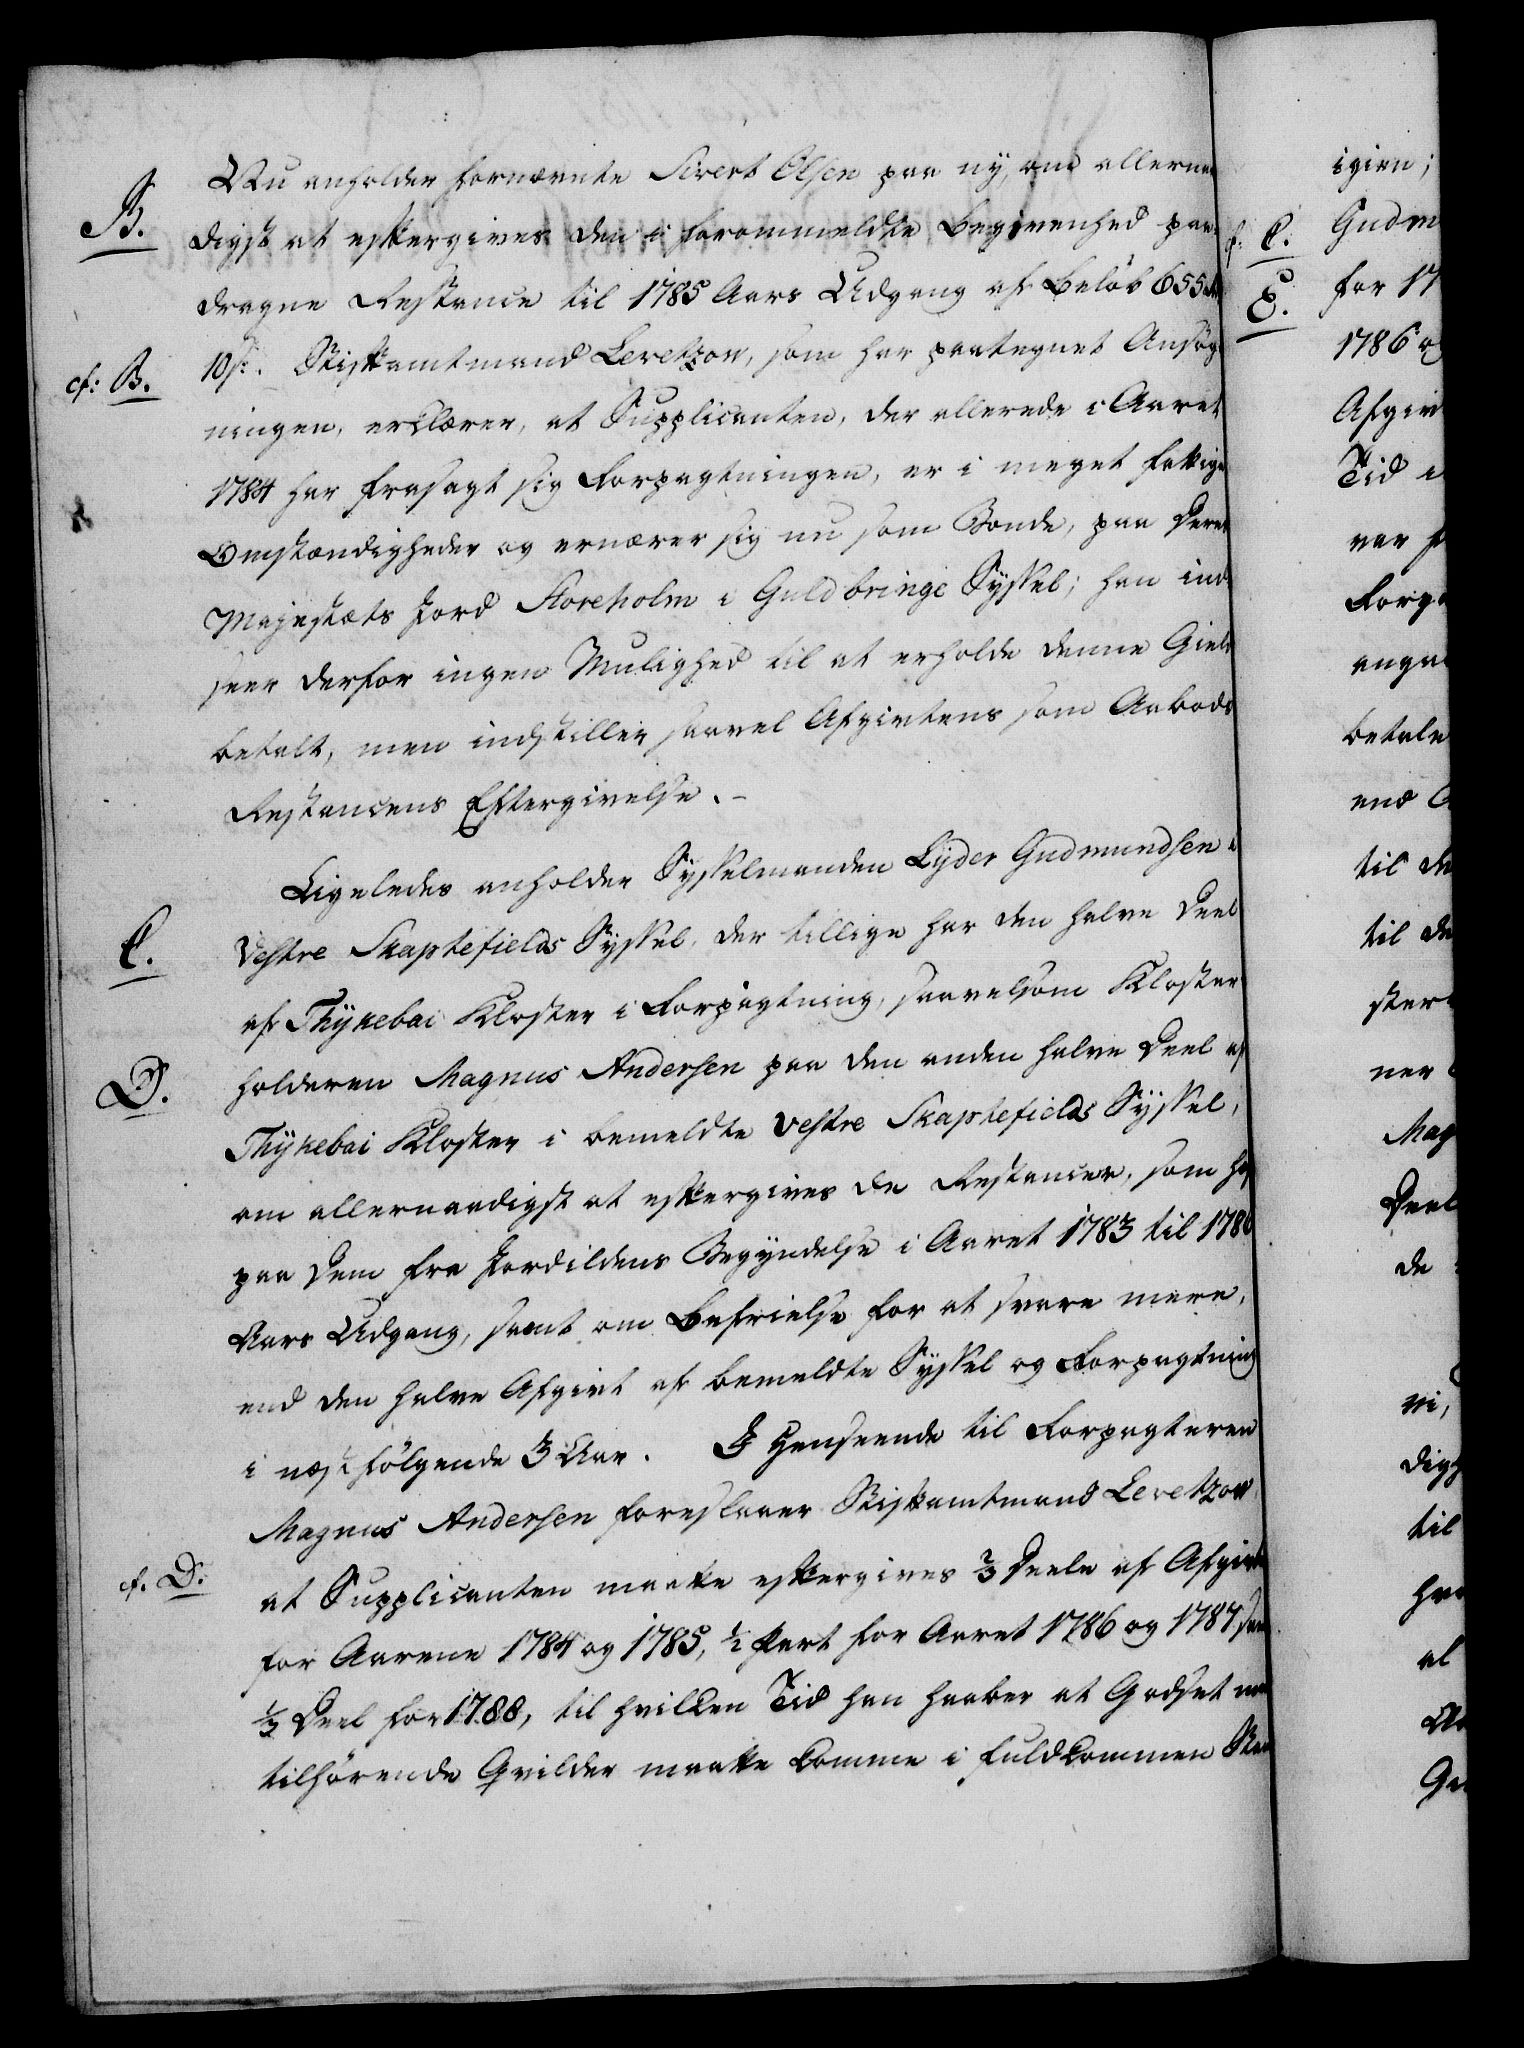 B.
Nu anholder fornævnte Sivert Olsen paa ny, om allernaa
digst at eftergives den i forommeldte Begivenhed paa
dragne Restance til 1785 Aars Udgang af Beløb 655
cf: B.
10 s. Stiftamtmand Levetzow, som har paategnet Ansøg
ningen, erklærer, at Supplicanten, der allerede i Aaret
1784 har frasagt sig Forpagtningen, er i meget fattige
Omstændigheder og ernærer sig nu som Bonde, paa Deres
Majestæts Jord Storeholm i Guldbringe Syssel; han ind
seer derfor ingen Mulighed til at erholde denne Gield
betalt, men indstiller saavel Afgivtens som Aabods
Restancens Eftergivelse. –
Ligeledes anholder Sysselmanden Lyder Gudmundsen i
C.
Vestre Skaptefields Syssel, der tillige har den halve Deel
af Thykebai Kloster i Forpagtning, saavelsom Kloster
D.
holderen Magnus Andersen paa den anden halve Deel af
Thykebai Kloster i bemeldte Vestre Skaptefields Syssel,
om allernaadigst at eftergives de Restancer, som
paa dem fra Jordildens Begyndelse i Aaret 1783 til 1786
Aars Udgang, samt om Befrielse for at svare mere,
end den halve Afgivt af bemeldte Syssel og Forpagtning
i næstfølgende 3 Aar. I Henseende til Forpagteren
Magnus Andersen foreslaaer Stiftamtmand Levetzow
cf. D.
at Supplicanten maatte eftergives 2/3 Deele af Afgivten
for Aarene 1784 og 1785, 1/2 Part for Aaret 1786 og 1787
1/3 Deel for 1788, til hvilken Tid han haaber at Godset med
tilhørende Qvilder maatte komme i fuldkommen
igien;
cf: C.
Gudm
E.
for 17
1786 og
Afgiv
Tid
var
Forpa
anga
betale
end
til de
til de
ster
ner
Mag
Deel
de
ni,
digh
til
al